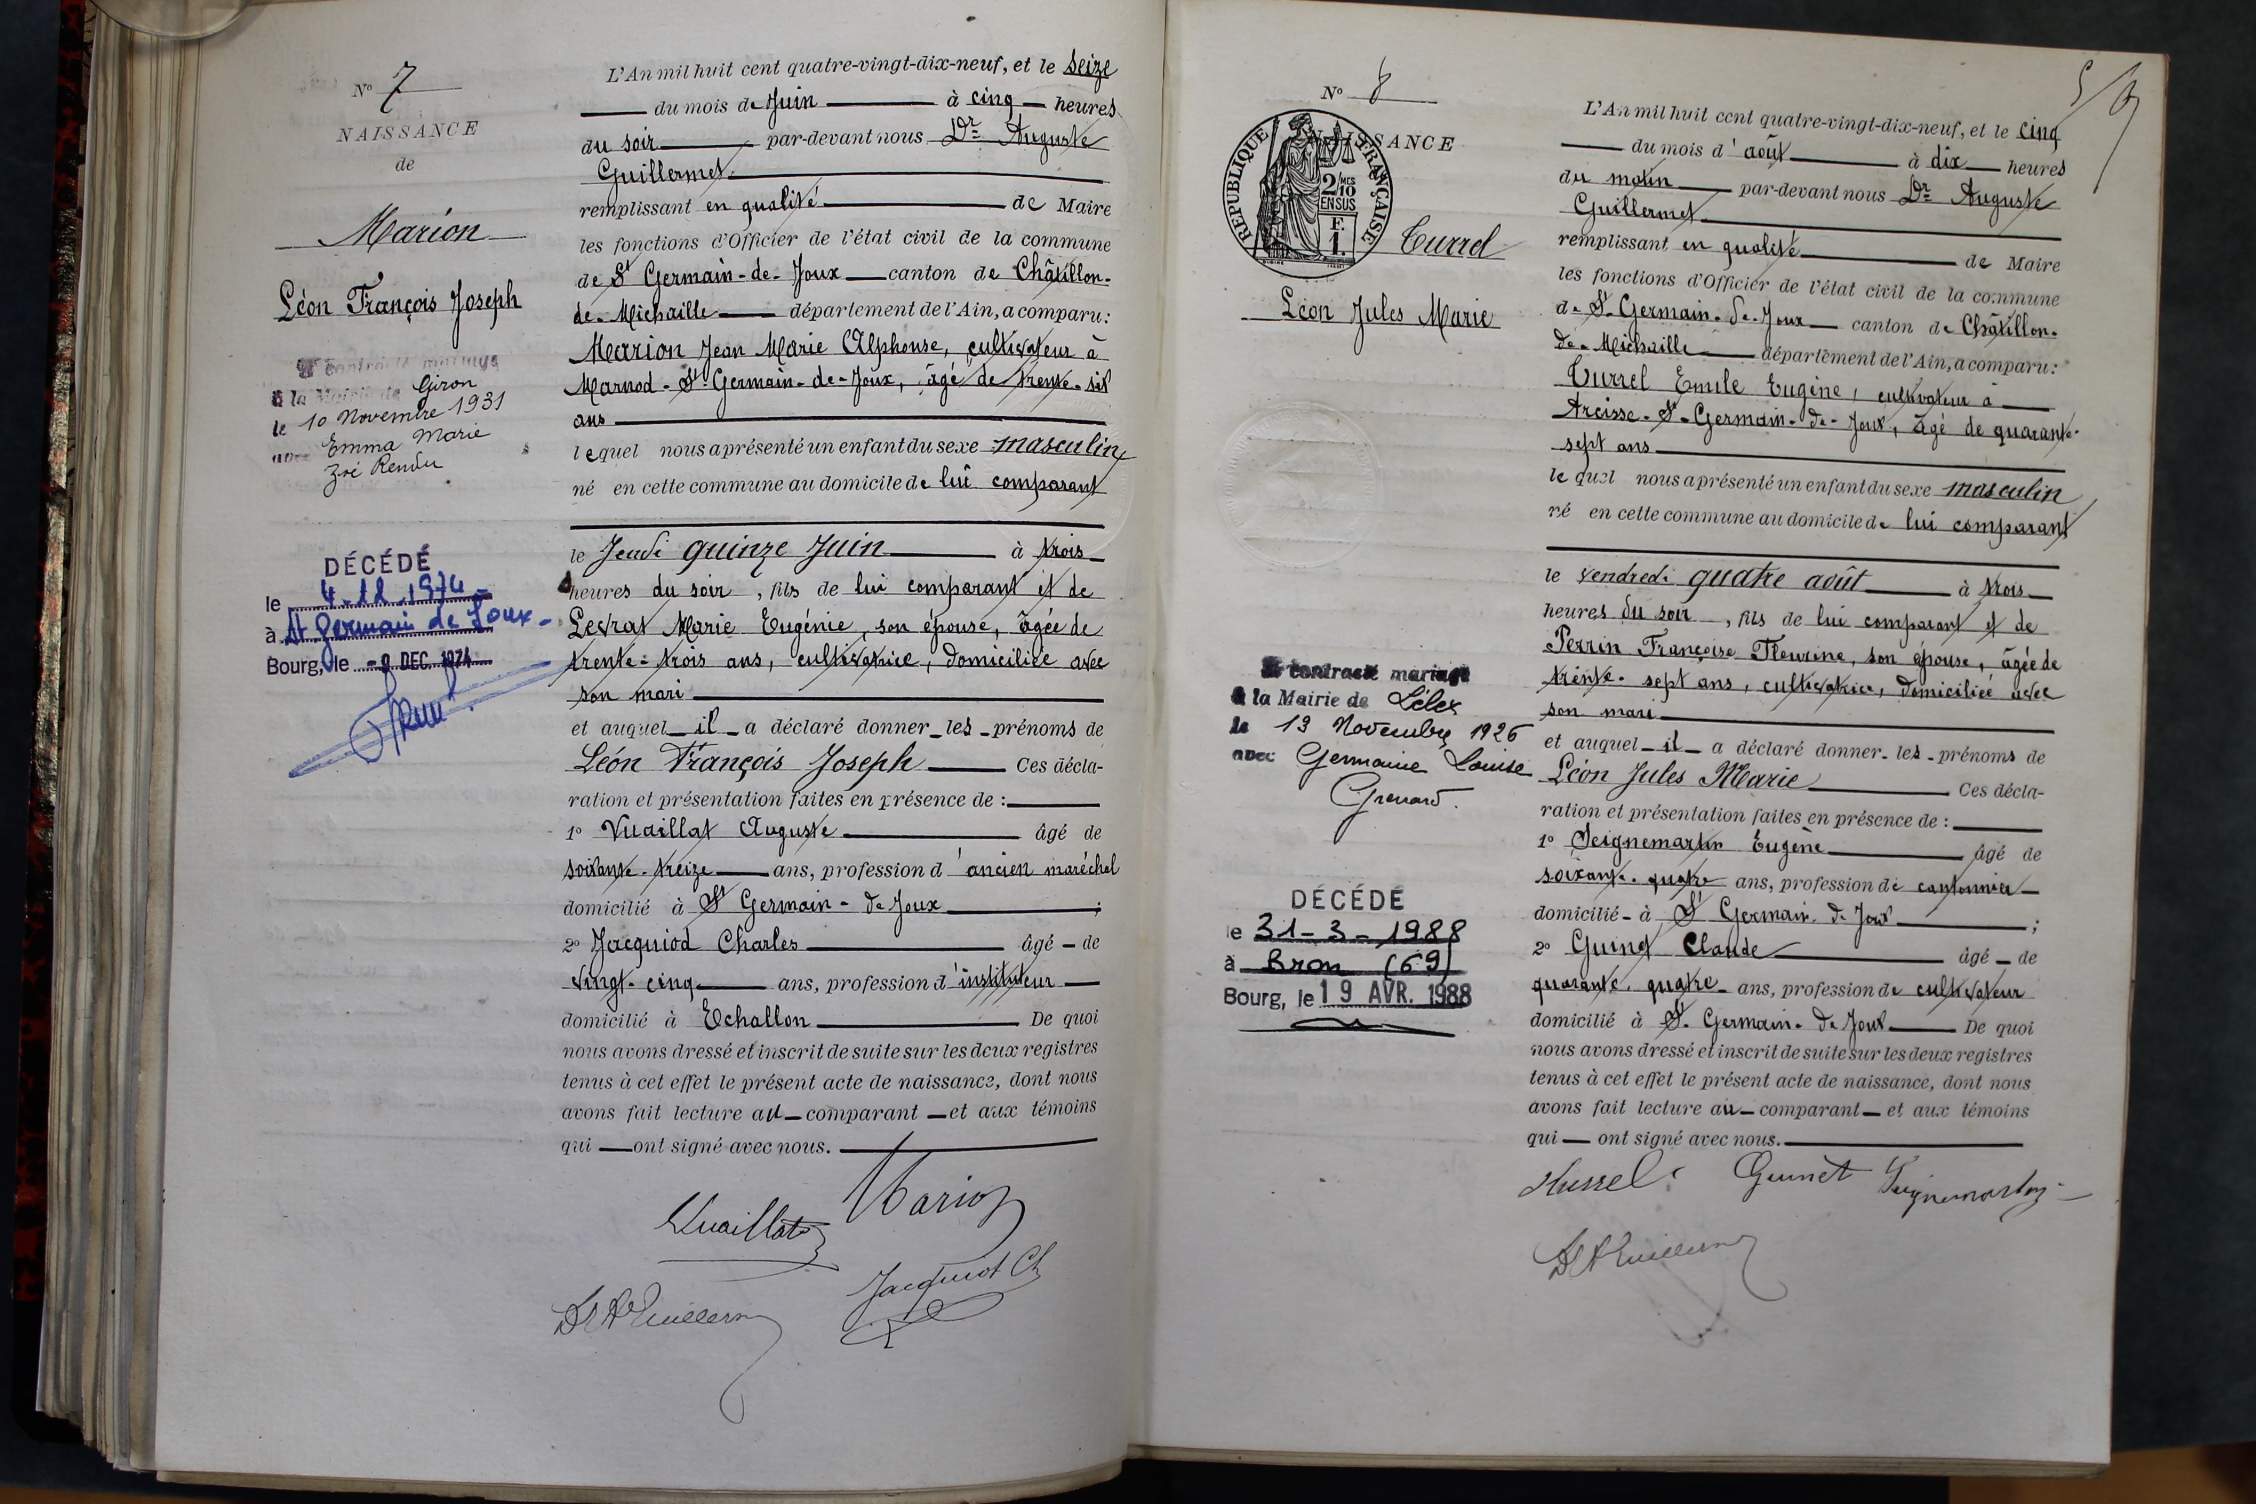 N° 7
NAISSANCE
de
Marion
Léon François Joseph
A contracté mariage
à la Mairie de Giron
le 10 Novembre 1931
avec Emma Marie
Zoé Rendu
DÉCÉDÉ
le 4-12-1974
à St Germain de Joux
Bourg, le -9 DEC. 1974
L'An mil huit cent quatre-vingt-dix-neuf, et le seize
du mois de Juin à cinq heures
du soir par-devant nous Dr Auguste
Guillermet
remplissant en qualité de Maire
les fonctions d'Officier de l'état civil de la commune
de St Germain-de-Joux canton de Châtillon-
de-Michaille département de l'Ain, a comparu:
Marion Jean Marie Alphonse, cultivateur à
Marnod-St-Germain-de-Joux, âgé de trente-six
ans
lequel nous a présenté un enfant du sexe masculin
né en cette commune au domicile de lui comparant
le Jeudi quinze Juin à trois
heures du soir, fils de lui comparant et de
Levrat Marie Eugénie, son épouse, âgée de
trente-trois ans, cultivatrice, domiciliée avec
son mari
et auquel il a déclaré donner les prénoms de
Léon François Joseph Ces décla-
ration et présentation faites en présence de :
1° Vuaillat Auguste âgé de
soixante-treize ans, profession d'ancien maréchal
domicilié à St Germain-de Joux ;
2° Jacquiod Charles âgé de
vingt-cinq ans, profession d'instituteur
domicilié à Echallon De quoi
nous avons dressé et inscrit de suite sur les deux registres
tenus à cet effet le présent acte de naissance, dont nous
avons fait lecture au comparant et aux témoins
qui ont signé avec nous.
Vuaillat Marion
Jacquiot Ch
Dr A Guillermet
5/9
N° 8
NAISSANCE
RÉPUBLIQUE FRANÇAISE
2/10 MES
EN SUS
F.
1.
Turrel
Léon Jules Marie
A contracté mariage
à la Mairie de Lélex
le 13 Novembre 1926
avec Germaine Louise
Grenard.
DÉCÉDÉ
le 31-3-1988
à Bron (69)
Bourg, le 19 AVR. 1988
L'An mil huit cent quatre-vingt-dix-neuf, et le cinq
du mois d'août à dix heures
du matin par-devant nous Dr Auguste
Guillermet
remplissant en qualité de Maire
les fonctions d'Officier de l'état civil de la commune
de St-Germain-de-Joux canton de Châtillon-
de-Michaille département de l'Ain, a comparu:
Turrel Emile Eugène, cultivateur à
Arcisse-St-Germain-de-Joux, âgé de quarante-
sept ans
lequel nous a présenté un enfant du sexe masculin
né en cette commune au domicile de lui comparant
le vendredi quatre août à trois
heures du soir, fils de lui comparant et de
Perrin Françoise Fleurine, son épouse, âgée de
trente-sept ans, cultivatrice, domiciliée avec
son mari
et auquel il a déclaré donner les prénoms de
Léon Jules Marie Ces décla-
ration et présentation faites en présence de :
1° Seignemartin Eugène âgé de
soixante-quatre ans, profession de cantonnier
domicilié à St Germain-de Joux ;
2° Guinet Claude âgé de
quarante-quatre ans, profession de cultivateur
domicilié à St-Germain-de Joux De quoi
nous avons dressé et inscrit de suite sur les deux registres
tenus à cet effet le présent acte de naissance, dont nous
avons fait lecture au comparant et aux témoins
qui ont signé avec nous.
Turrel e Guinet Seignemartin
Dr A Guillermet